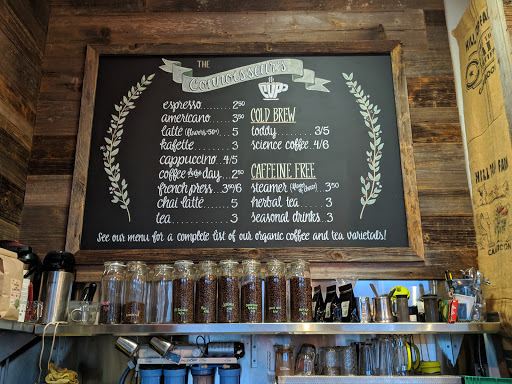 THE
Connoisseur's
CUP
espresso........2⁵⁰
americano.......3⁵⁰
latte (flavors+50¢).. 5
kafette.........3
cappuccino..4/5
coffee of the day...2⁵⁰
french press...3⁵⁰/6
chai latte......5
tea.............3
COLD BREW
toddy........3/5
science coffee..4/6
CAFFEINE FREE
steamer 3⁵⁰
herbal tea.....3
seasonal drinks..3
See our menu for a complete list of our organic coffee and tea varietals!